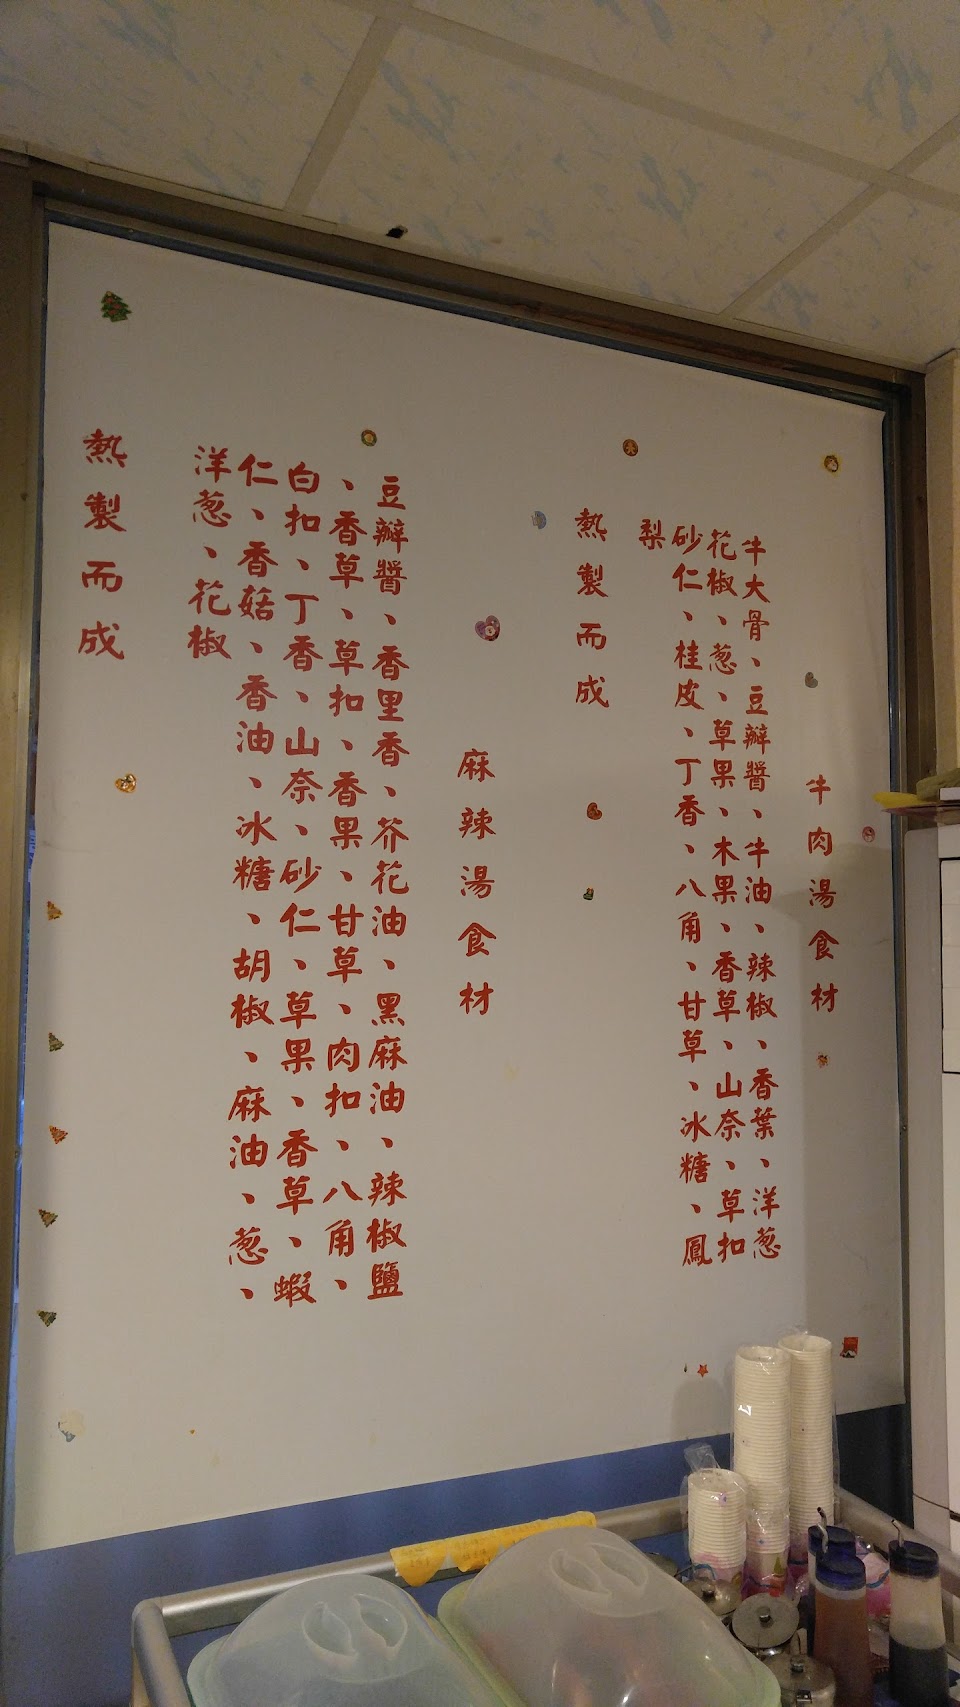 牛肉湯食材
牛大骨、豆瓣醬、牛油、辣椒、香葉、洋葱
花椒、葱、草果、木果、香草、山奈、草扣
砂仁、桂皮、丁香、八角、甘草、冰糖、鳳
梨
熱製而成
麻辣湯食材
豆瓣醬、香里香、芥花油、黑麻油、辣椒鹽
、香草、草扣、香果、甘草、肉扣、八角、
白扣、丁香、山奈、砂仁、草果、香草、蝦
仁、香菇、香油、冰糖、胡椒、麻油、葱、
洋葱、花椒
熱製而成